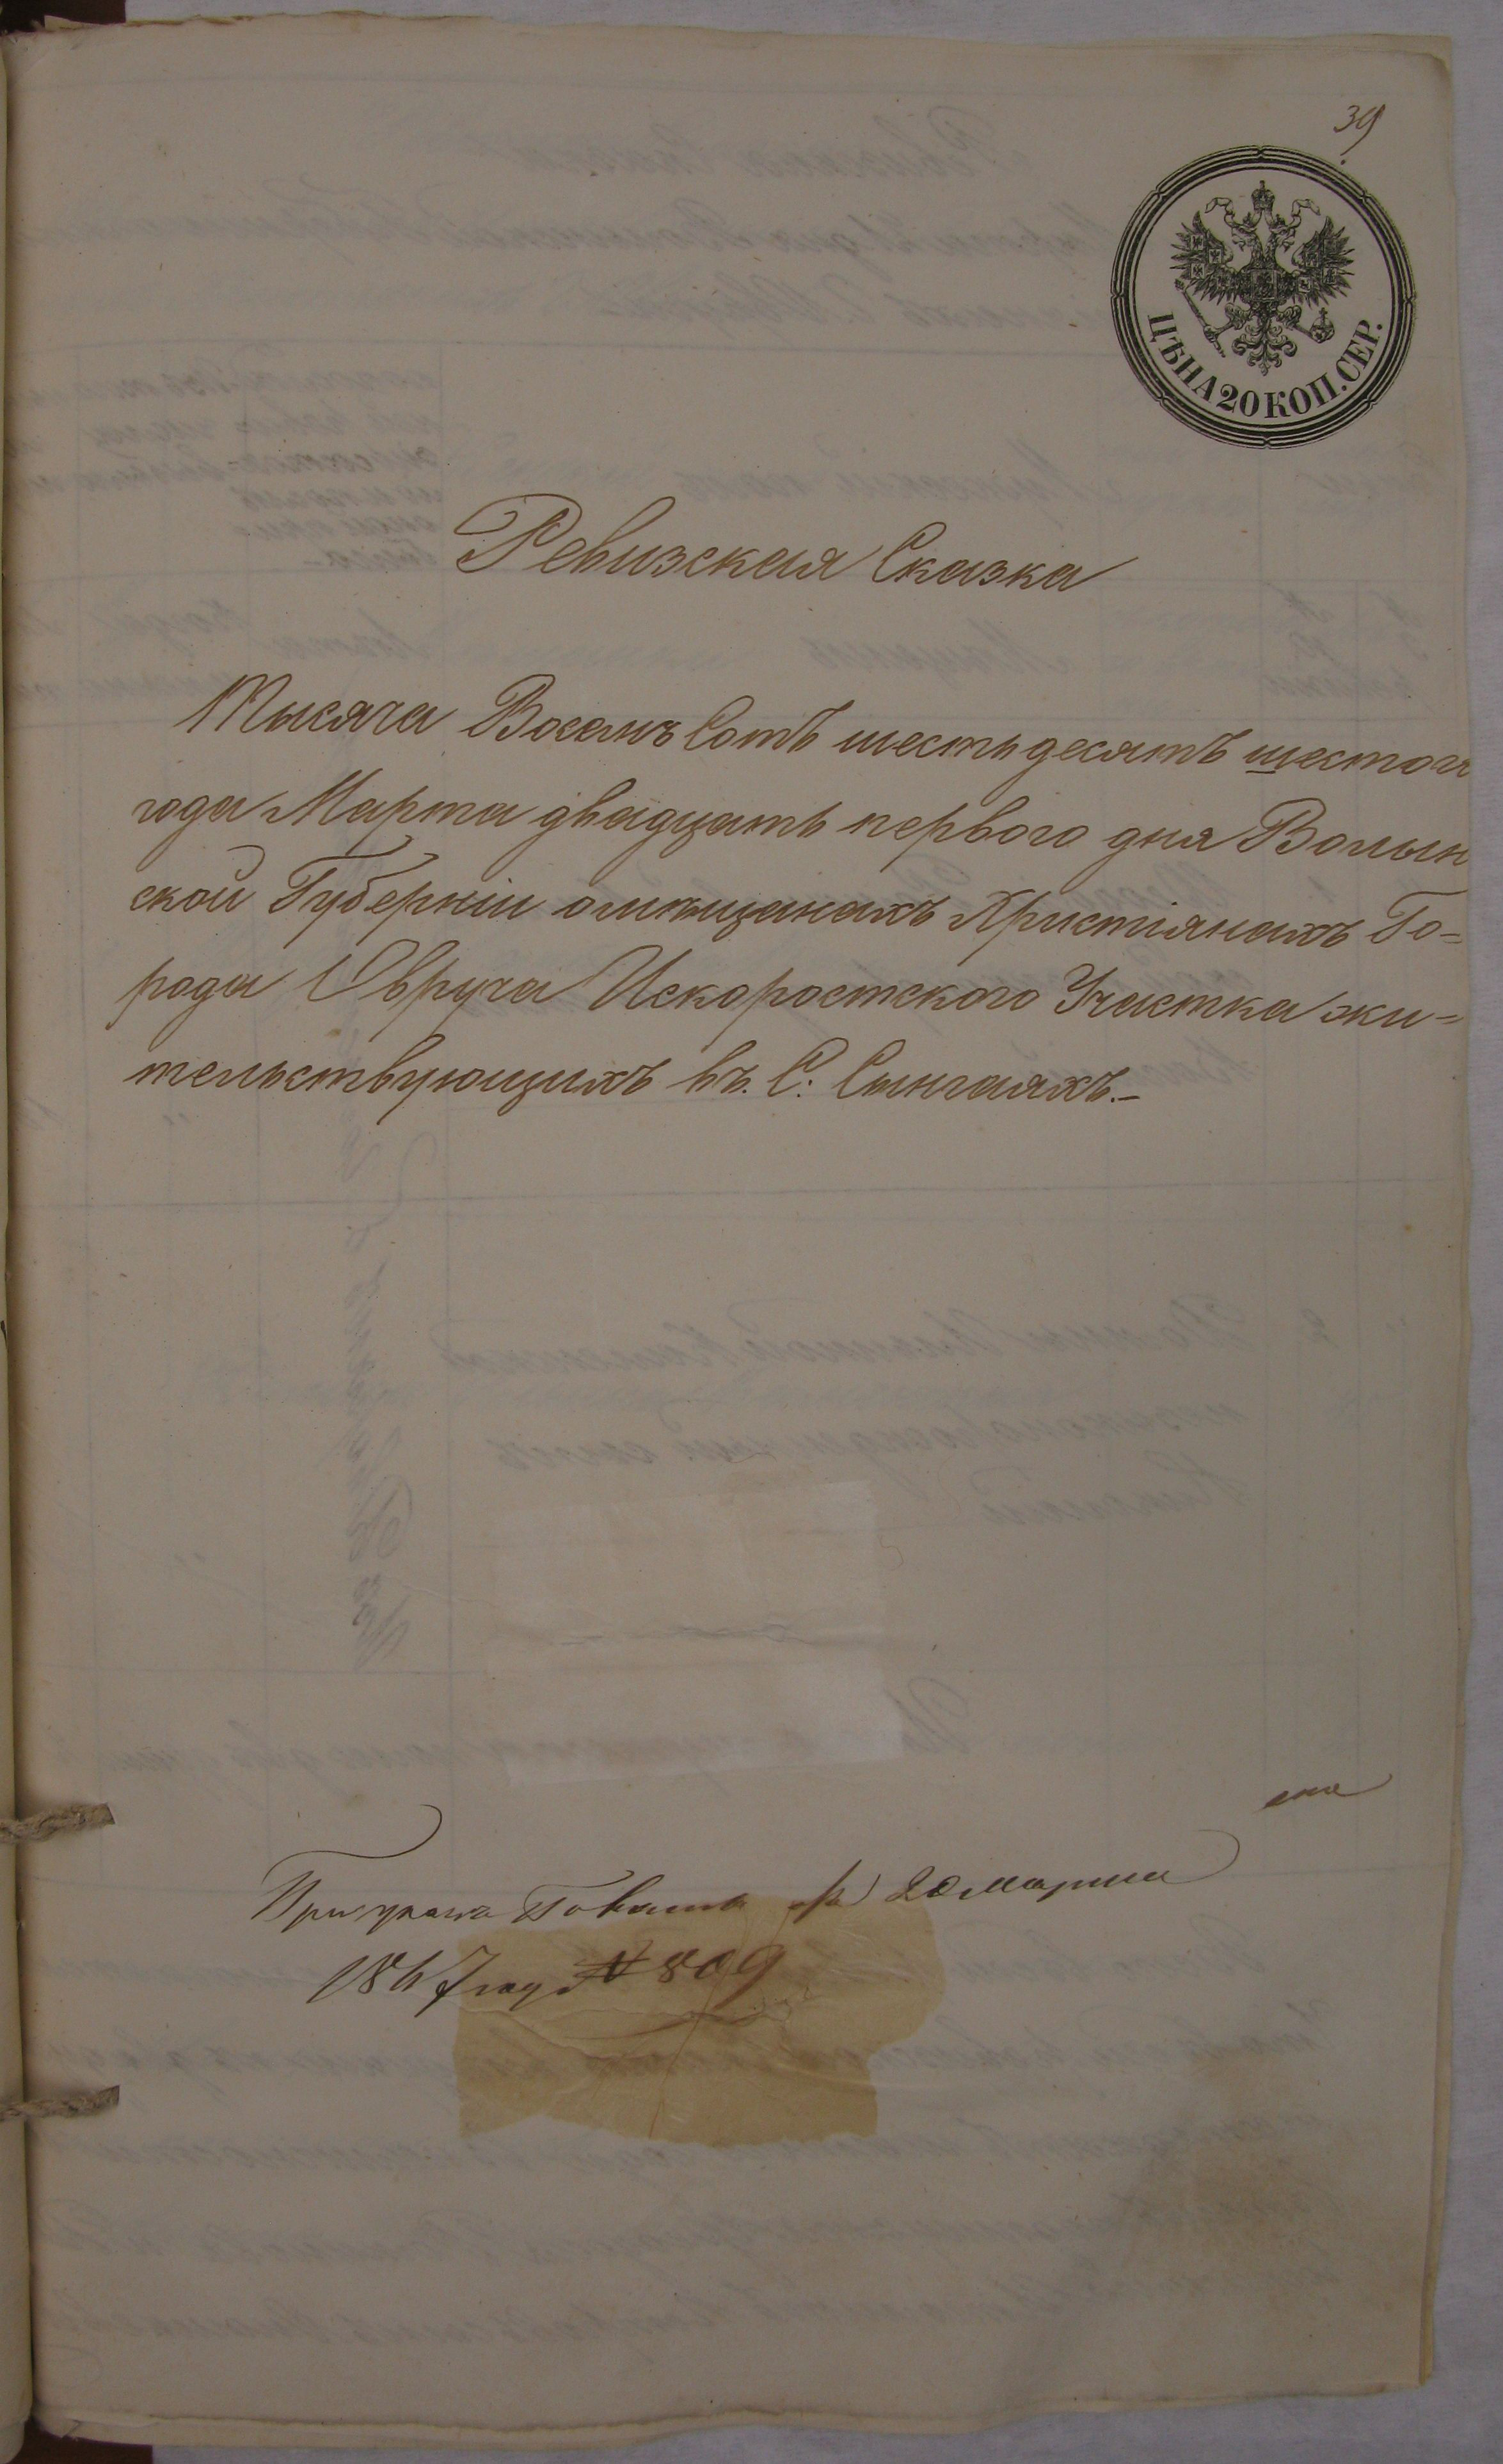 39
ЦѢНА 20 КОП. СЕР.
Ревизская Сказка
Тысяча Восемъ Сотъ шестьдесятъ шестого
года Марта двадцать первого дня Волын
ской Губерніи омѣщанахъ Христіянахъ Го=
рода Овруча Искоростского Участка жи=
тельствующихъ въ. С: Сынгаяхъ.-
При указѣ 20 марта
1867 года № 809